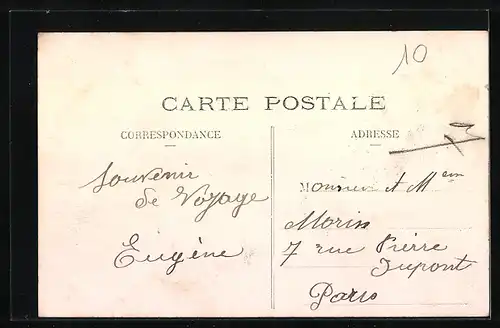 10
CARTE POSTALE
CORRESPONDANCE
ADRESSE
Souvenir
de Voyage
Eugène
Monsieur et Mem
Morin
7 rue Pierre
Dupont
Paris